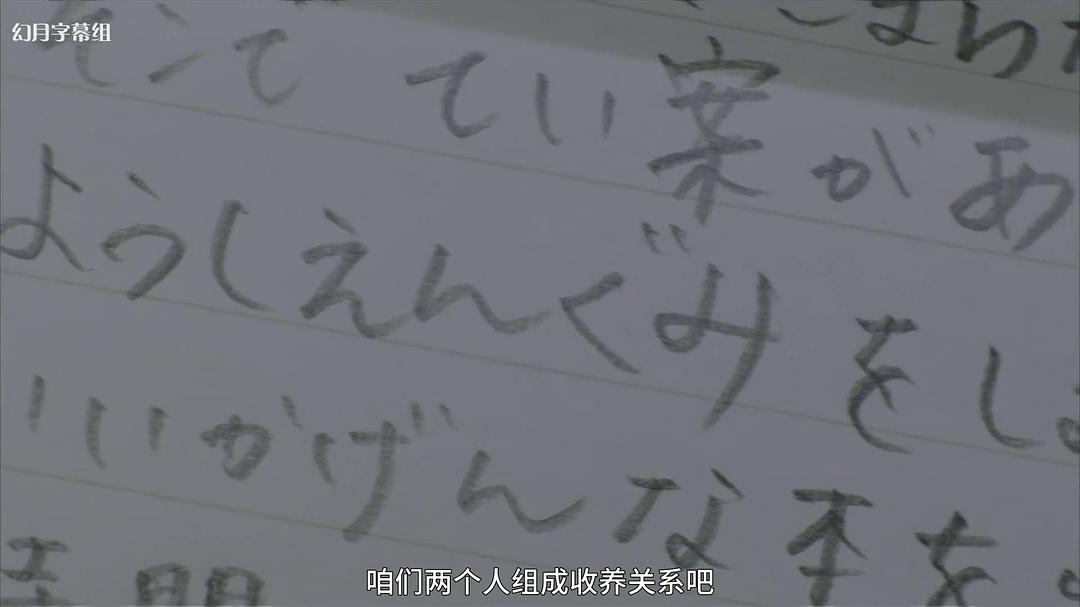 幻月字幕组
そこで てい案があ
ようしえんぐみをし
いいかげんな本を
咱们两个人组成收养关系吧